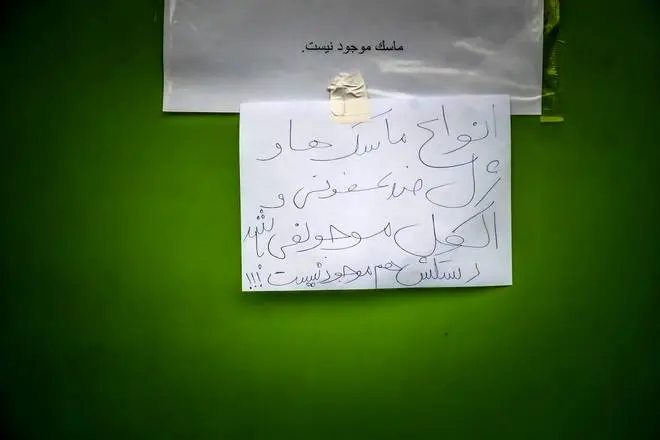 ماسک موجود نیست.
انواع ماسک ها و
ژل ضدعفونی و
الکل موجو نمی باشد
دستکش هم موجود نیست !!!